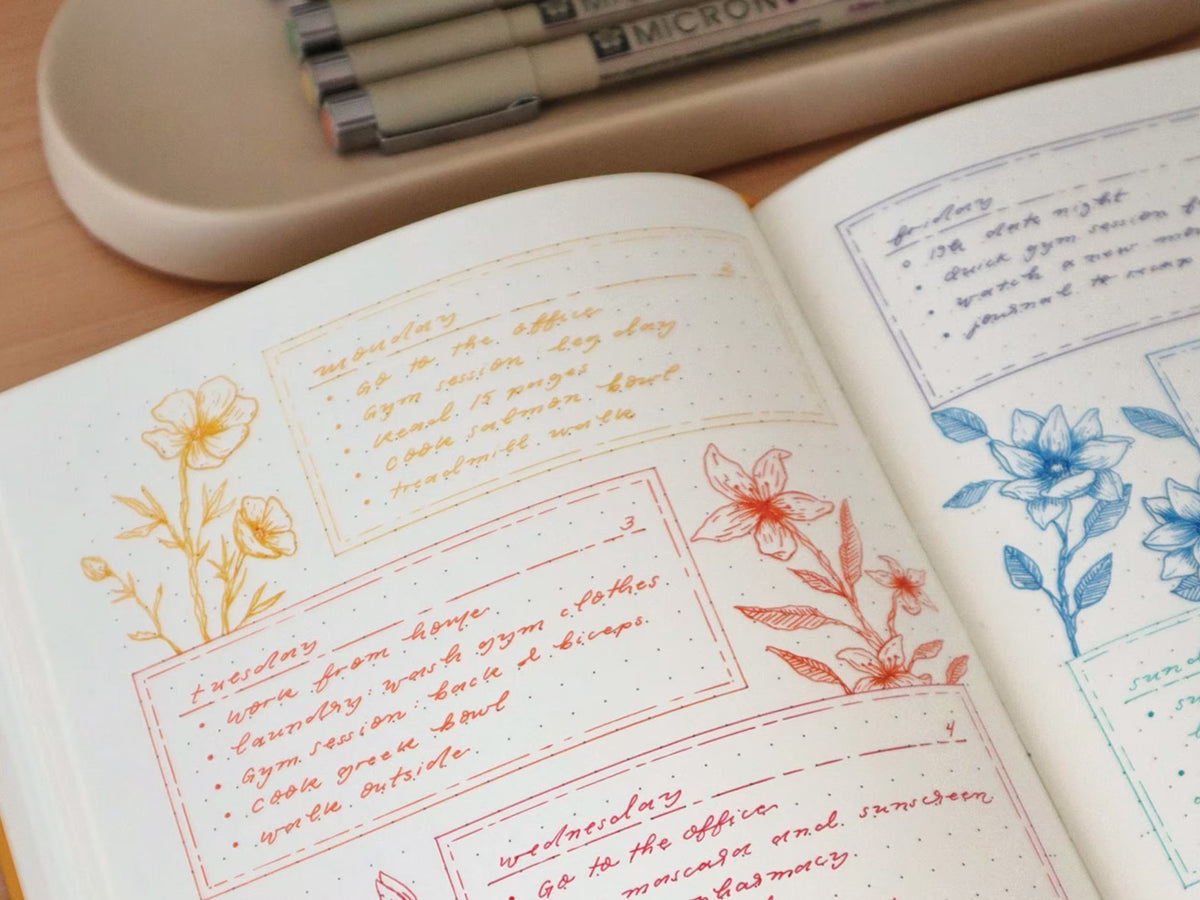 MICRON
monday
• Go to the office
• Gym session: leg day
• Read 15 pages
• cook salmon bowl
• treadmill walk
tuesday 3
• work from home
• laundry: wash gym clothes
• Gym session: back & biceps
• cook greek bowl
• walk outside
wednesday 4
• Go to the office
mascara and sunscreen
pharmacy
friday
• date night
• quick gym session
• watch a new
• journal to recap